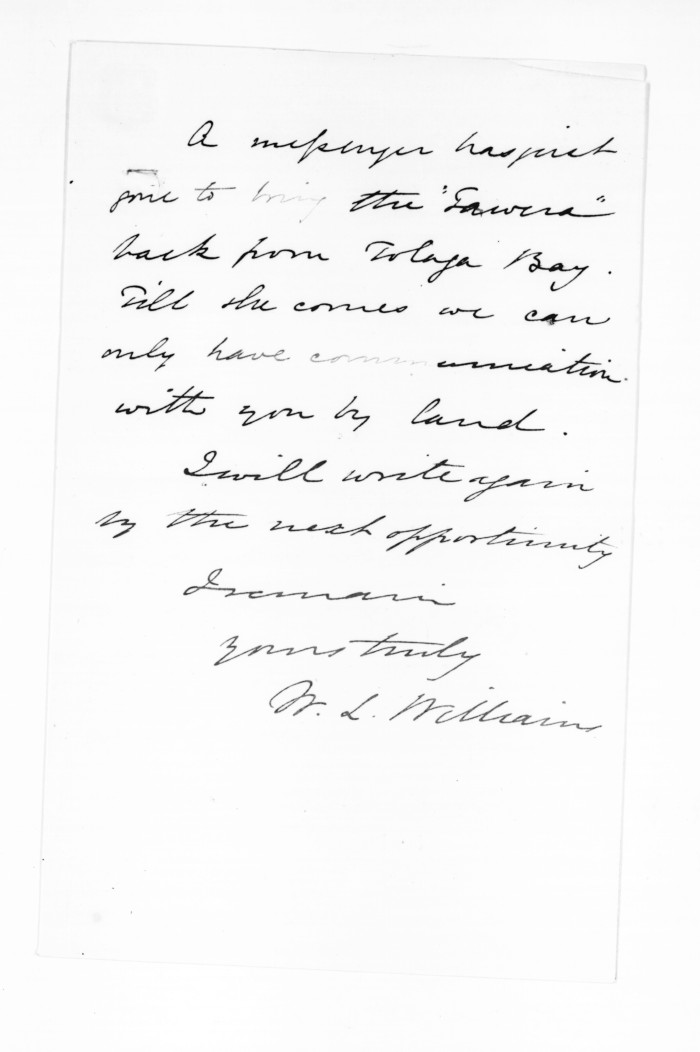 A messenger has just
gone to bring the "Tawera"
back from Tolaga Bay.
Till she comes we can
only have communication
with you by land.
I will write again
by the next opportunity
I remain
yours truly
W. L. Williams